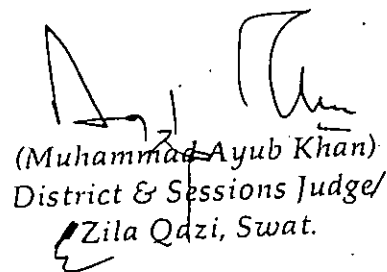 (Muhammad Ayub Khan)
District & Sessions Judge/
Zila Qazi, Swat.